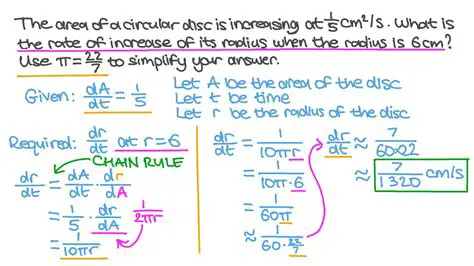 The area of a circular disc is increasing at 1/5 cm²/s. What is
the rate of increase of its radius when the radius is 6cm?
Use π = 22/7 to simplify your answer.
Given: dA/dt = 1/5
Let A be the area of the disc
Let t be time
Let r be the radius of the disc
Required: dr/dt at r = 6
CHAIN RULE
dr/dt = dA/dt · dr/dA
= 1/5 · dr/dA 1/2πr
= 1/10πr
dr/dt = 1/10πr
= 1/10π·6
= 1/60π
≈ 1/60·22/7
dr/dt ≈ 7/60×22
≈ 7/1320 cm/s